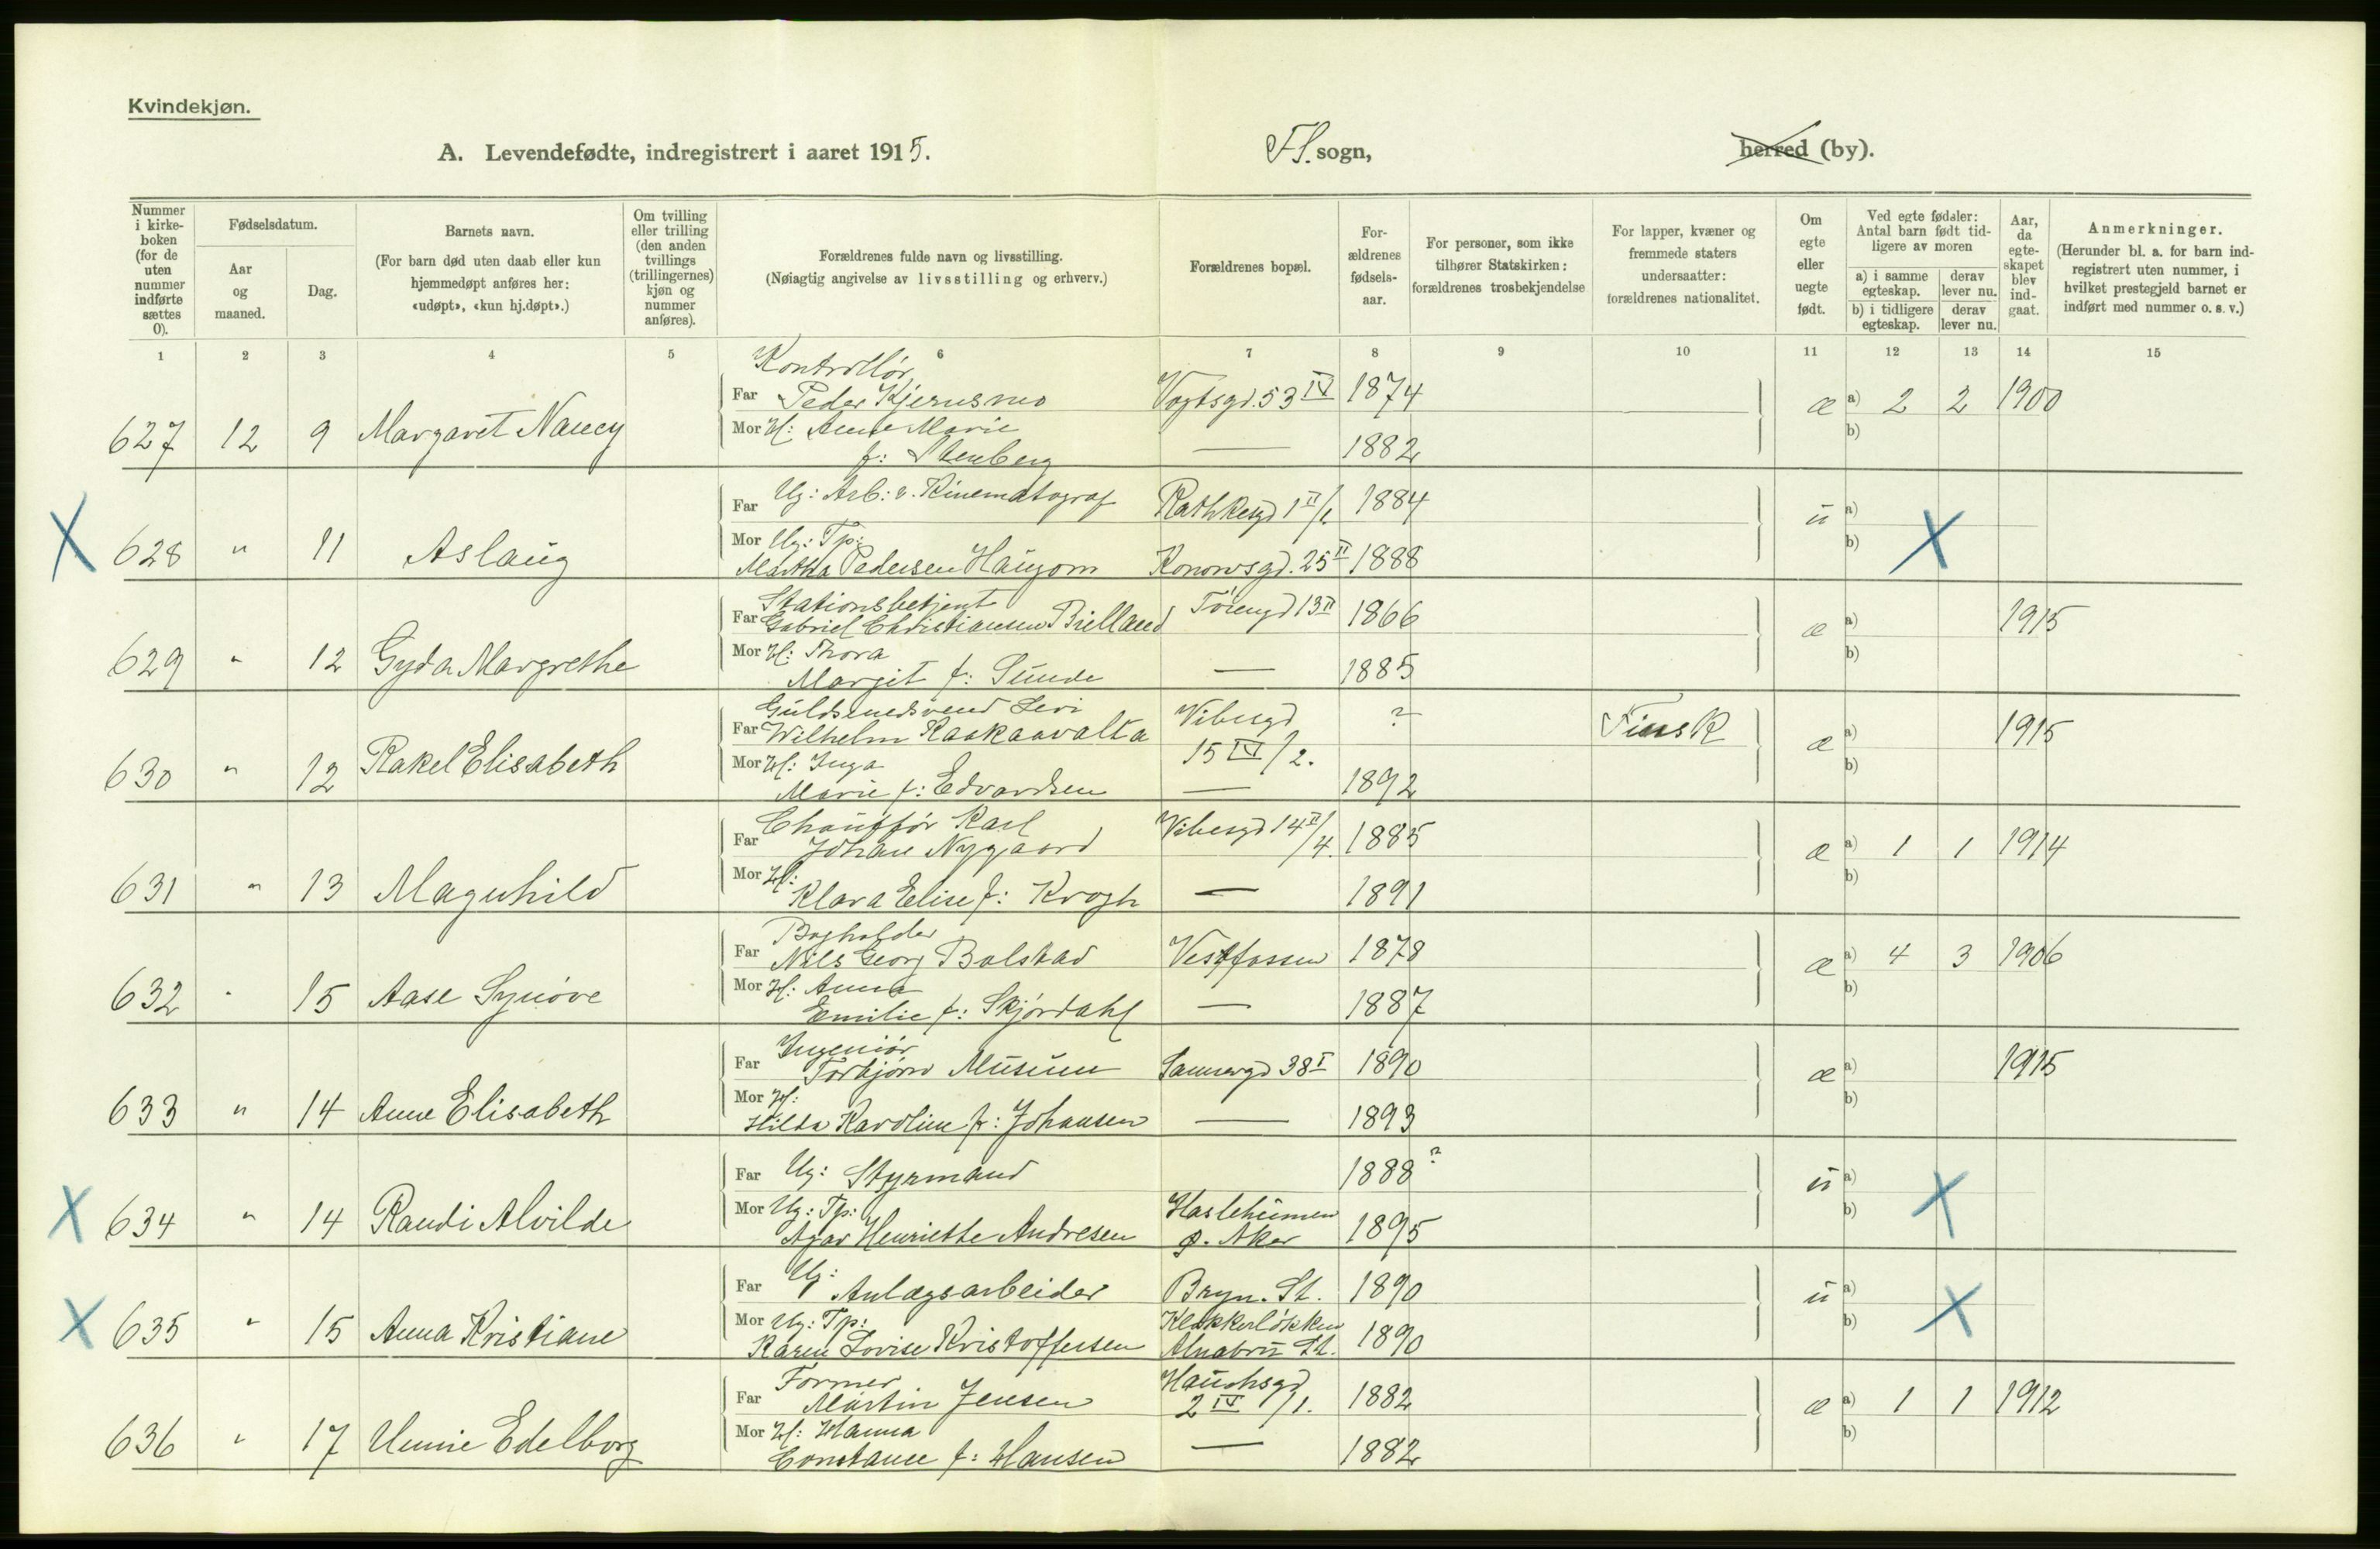 Kvindekjøn.
A. Levendefødte, indregistrert i aaret 1915.
FS. sogn,
herred (by).
Nummer i kirkeboken (for de uten nummer indførte sættes 0).
Fødselsdatum.
Aar og maaned.
Dag.
Barnets navn.
(For barn død uten daab eller kun hjemmedøpt anføres her: «udøpt», «kun hj.døpt».)
Om tvilling eller trilling (den anden tvillings (trillingernes) kjøn og nummer anføres).
Forældrenes fulde navn og livsstilling.
(Nøiagtig angivelse av livsstilling og erhverv.)
Forældrenes bopæl.
Forældrenes fødselsaar.
For personer, som ikke tilhører Statskirken: forældrenes trosbekjendelse
For lapper, kvæner og fremmede staters undersaatter: forældrenes nationalitet.
Om egte eller uegte født.
Ved egte fødsler: Antal barn født tidligere av moren
a) i samme egteskap.
derav lever nu.
b) i tidligere egteskap.
derav lever nu.
Aar, da egteskapet blev indgaat.
Anmerkninger.
(Herunder bl. a. for barn indregistrert uten nummer, i hvilket prestegjeld barnet er indført med nummer o. s. v.)
1 2 3 4 5 6 7 8 9 10 11 12 13 14 15
Kontrollør
Far Peder Kjernsmo Vogtsgd. 53 IV 1874 æ a) 2 2 1900
627 12 9 Margaret Nancy Mor H: Anne Marie b)
f: Stenberg — 1882
Far Ug: Arb: v. Kinematograf Rathkesgd 1 II/1. 1884 u a)
X 628 " 11 Aslaug Mor Ug: Tp: b) X
Martha Pedersen Haugom Konowsgd. 25 II 1888
Stationsbetjent
Far Gabriel Christiansen Birlland Töiengd 13 II 1866 æ a) 1915
629 " 12 Gyda Margrethe Mor H: Thora b)
Margit f: Sunde — 1885
Guldsmedsvend Levi
Far Wilhelm Kaakaavalta Vibesgd ? Finsk æ a) 1915
15 IV/2.
630 " 12 Rakel Elisabeth Mor H: Inga b)
Marie f: Edvardsen — 1892
Chauffør Karl
Far Johan Nygaard Vibesgd 14 II/4. 1885 æ a) 1 1 1914
631 " 13 Magnhild Mor H: b)
Klara Elise f: Krogh — 1891
Bogholder
Far Nils Georg Bolstad Vestfossen 1878 æ a) 4 3 1906
632 " 15 Aase Synöve Mor H: Anna b)
Emilie f: Skjördahl — 1887
Ingeniör
Far Torbjörn Museum Sannergd 38 I 1890 æ a) 1915
633 " 14 Anne Elisabeth Mor H: b)
Hilda Karoline f: Johansen — 1893
Far Ug: Styrmand 1888 ? u a)
X 634 " 14 Randi Alvilde Mor Ug: Tp: Hasleheimen b) X
Agar Henriette Andresen Ø. Aker 1895
Far Ug: Anlægsarbeider Bryn. St. 1890 u a)
X 635 " 15 Anna Kristiane Mor Ug: Tp: Klokkerløkken b) X
Karen Lovise Kristoffersen Alnabru St. 1890
Former Hauchsgd
Far Martin Jensen 2 IV/1. 1882 æ a) 1 1 1912
636 " 17 Unnie Edelborg Mor H: Hanna b)
Constance f: Hansen — 1882